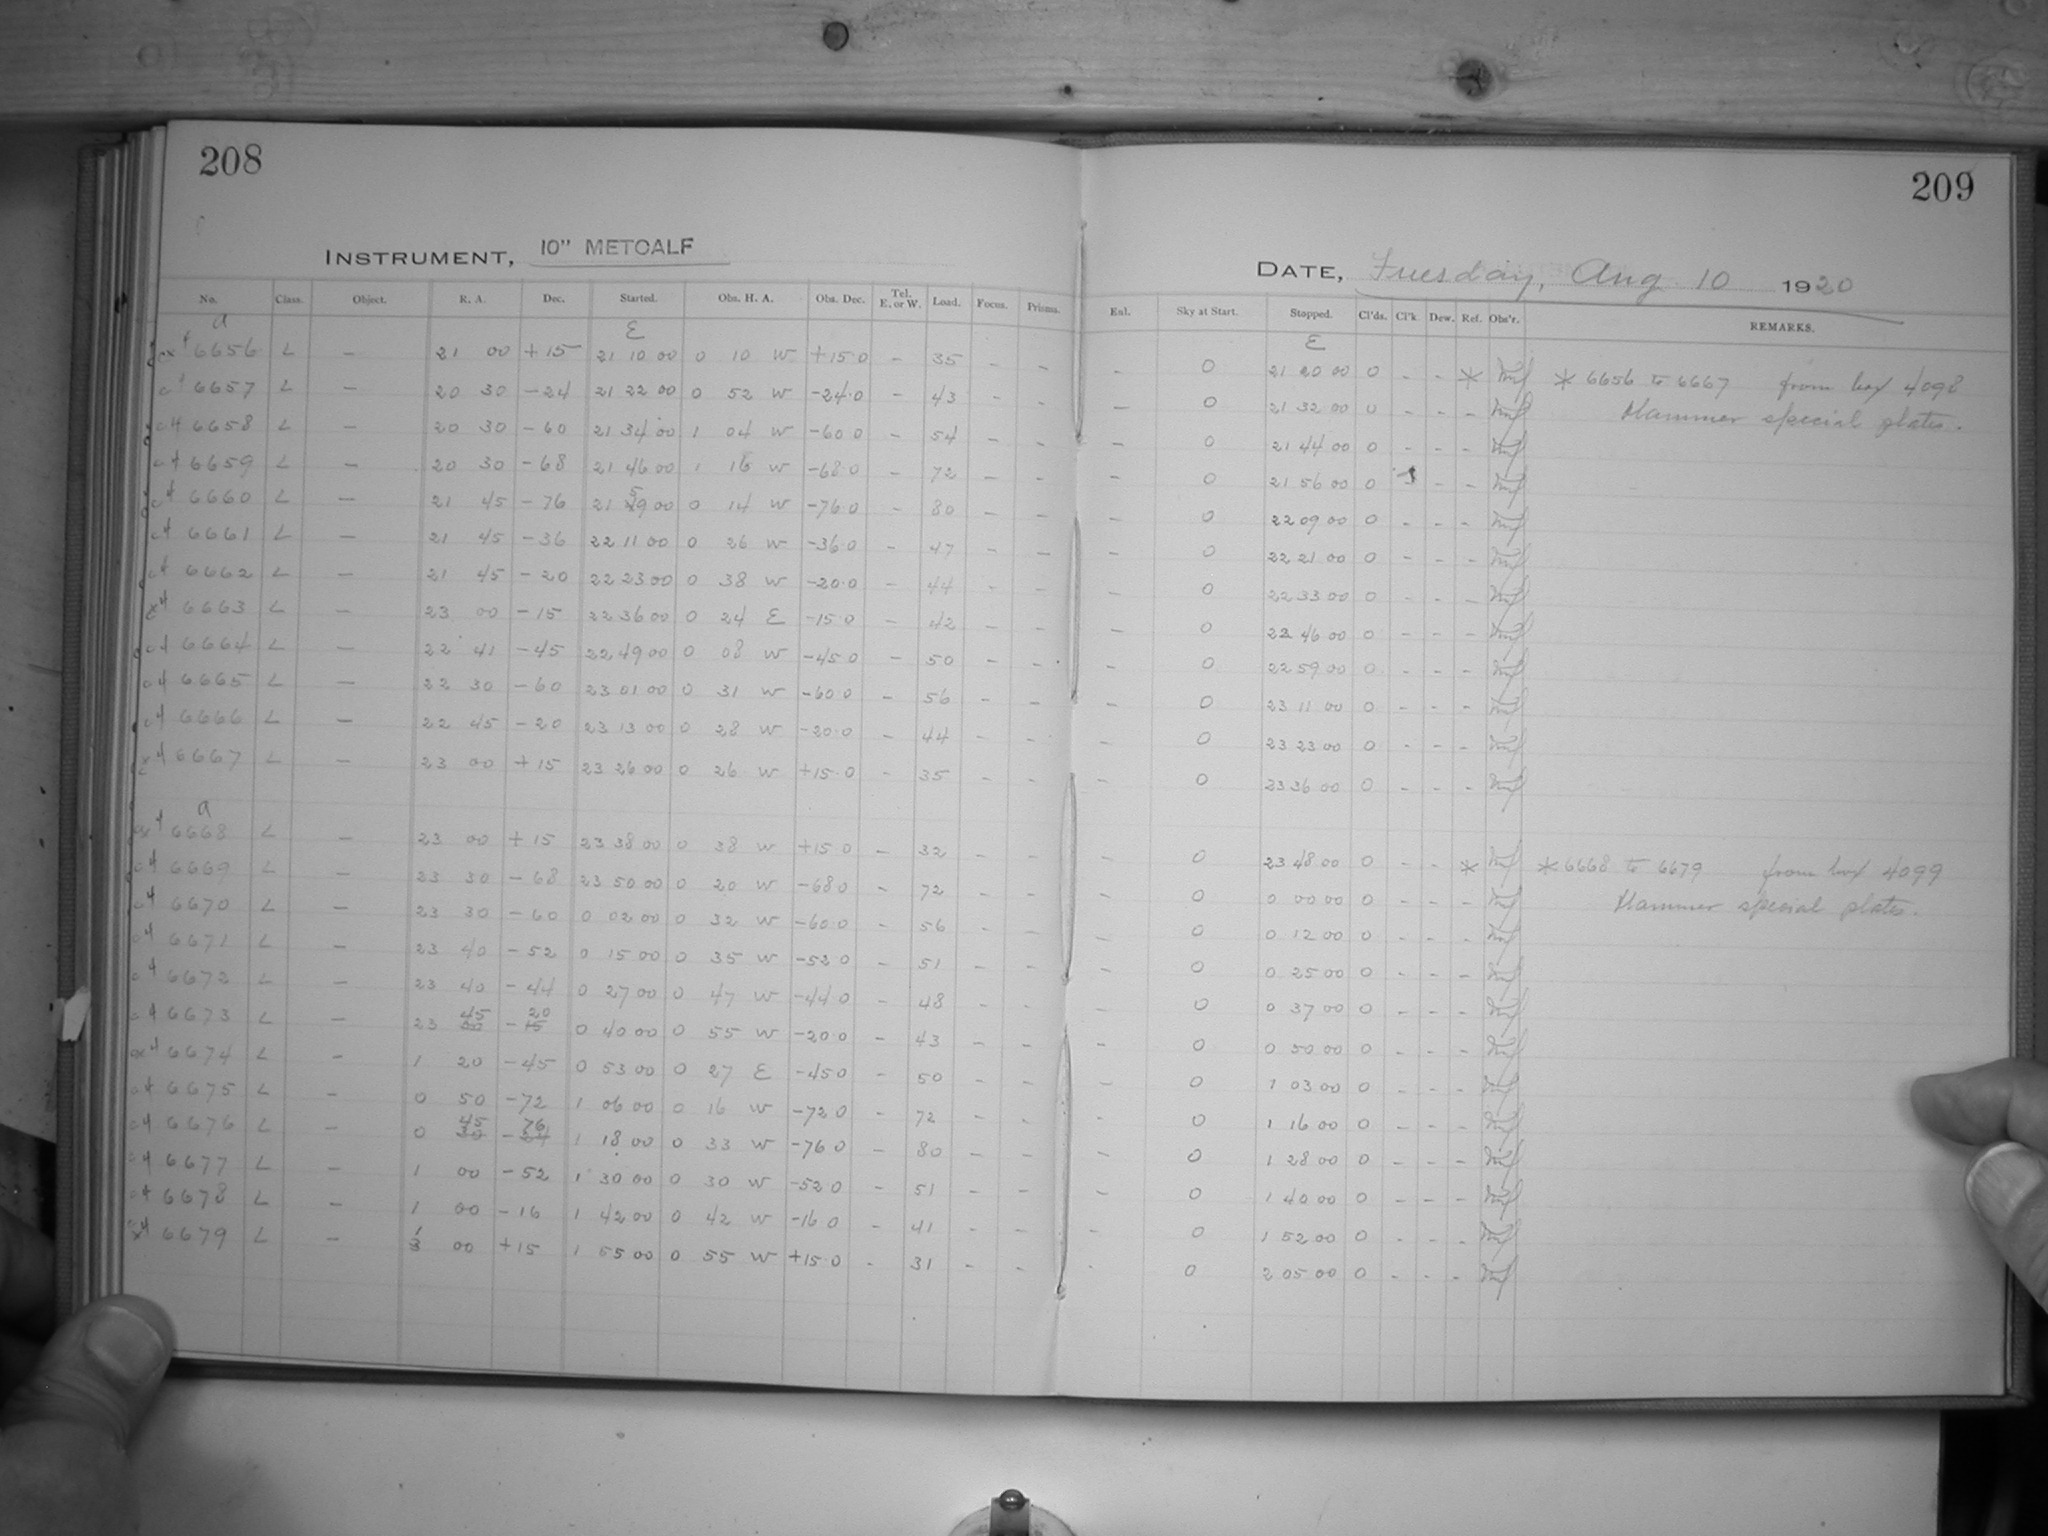 208
209
INSTRUMENT, 10" METCALF
DATE, Tuesday, Aug 10 1920
No. Class. Object. R. A. Dec. Started. Obs. H. A. Obs. Dec. Tel. E. or W. Load. Focus. Prisms. Enl. Sky at Start. Stopped. Cl'ds. Cl'k. Dew. Ref. Obs'r. REMARKS.
a E E
6656 L — 21 00 +15 21 10 00 0 10 W +15.0 - 35 - - - 0 21 20 00 0 - - * * 6656 to 6667 from box 4098
6657 L — 20 30 -24 21 22 00 0 52 W -24.0 - 43 - - - 0 21 32 00 0 - - - Hammer special plates.
6658 L — 20 30 -60 21 34 00 1 04 W -60 0 - 54 - - - 0 21 44 00 0 - - -
6659 L — 20 30 -68 21 46 00 1 16 W -68 0 - 72 - - - 0 21 56 00 0 - -
6660 L — 21 45 -76 21 59 00 0 14 W -76 0 - 80 - - - 0 22 09 00 0 - - -
6661 L — 21 45 -36 22 11 00 0 26 W -36 0 - 47 - - - 0 22 21 00 0 - - -
6662 L — 21 45 -20 22 23 00 0 38 W -20.0 - 44 - - - 0 22 33 00 0 - - -
6663 L — 23 00 -15 22 36 00 0 24 E -15 0 - 42 - - - 0 22 46 00 0 - - -
6664 L — 22 41 -45 22 49 00 0 08 W -45 0 - 50 - - - 0 22 59 00 0 - - -
6665 L — 22 30 -60 23 01 00 0 31 W -60 0 - 56 - - - 0 23 11 00 0 - - -
6666 L — 22 45 -20 23 13 00 0 28 W -20.0 - 44 - - - 0 23 23 00 0 - - -
6667 L — 23 00 +15 23 26 00 0 26 W +15.0 - 35 - - - 0 23 36 00 0 - - -
a
6668 L — 23 00 +15 23 38 00 0 38 W +15 0 - 32 - - - 0 23 48 00 0 - - * * 6668 to 6679 from box 4099
6669 L — 23 30 -68 23 50 00 0 20 W -68 0 - 72 - - - 0 0 00 00 0 - - - Hammer special plates.
6670 L — 23 30 -60 0 02 00 0 32 W -60 0 - 56 - - - 0 0 12 00 0 - - -
6671 L — 23 40 -52 0 15 00 0 35 W -52 0 - 51 - - - 0 0 25 00 0 - - -
6672 L — 23 40 -44 0 27 00 0 47 W -44 0 - 48 - - - 0 0 37 00 0 - - -
6673 L — 23 45 -20 0 40 00 0 55 W -20.0 - 43 - - - 0 0 50 00 0 - - -
6674 L — 1 20 -45 0 53 00 0 27 E -45 0 - 50 - - - 0 1 03 00 0 - - -
6675 L — 0 50 -72 1 06 00 0 16 W -72 0 - 72 - - - 0 1 16 00 0 - - -
6676 L — 0 45 -76 1 18 00 0 33 W -76 0 - 80 - - - 0 1 28 00 0 - - -
6677 L — 1 00 -52 1 30 00 0 30 W -52 0 - 51 - - - 0 1 40 00 0 - - -
6678 L — 1 00 -16 1 42 00 0 42 W -16 0 - 41 - - - 0 1 52 00 0 - - -
6679 L — 1 00 +15 1 55 00 0 55 W +15.0 - 31 - - - 0 2 05 00 0 - - -